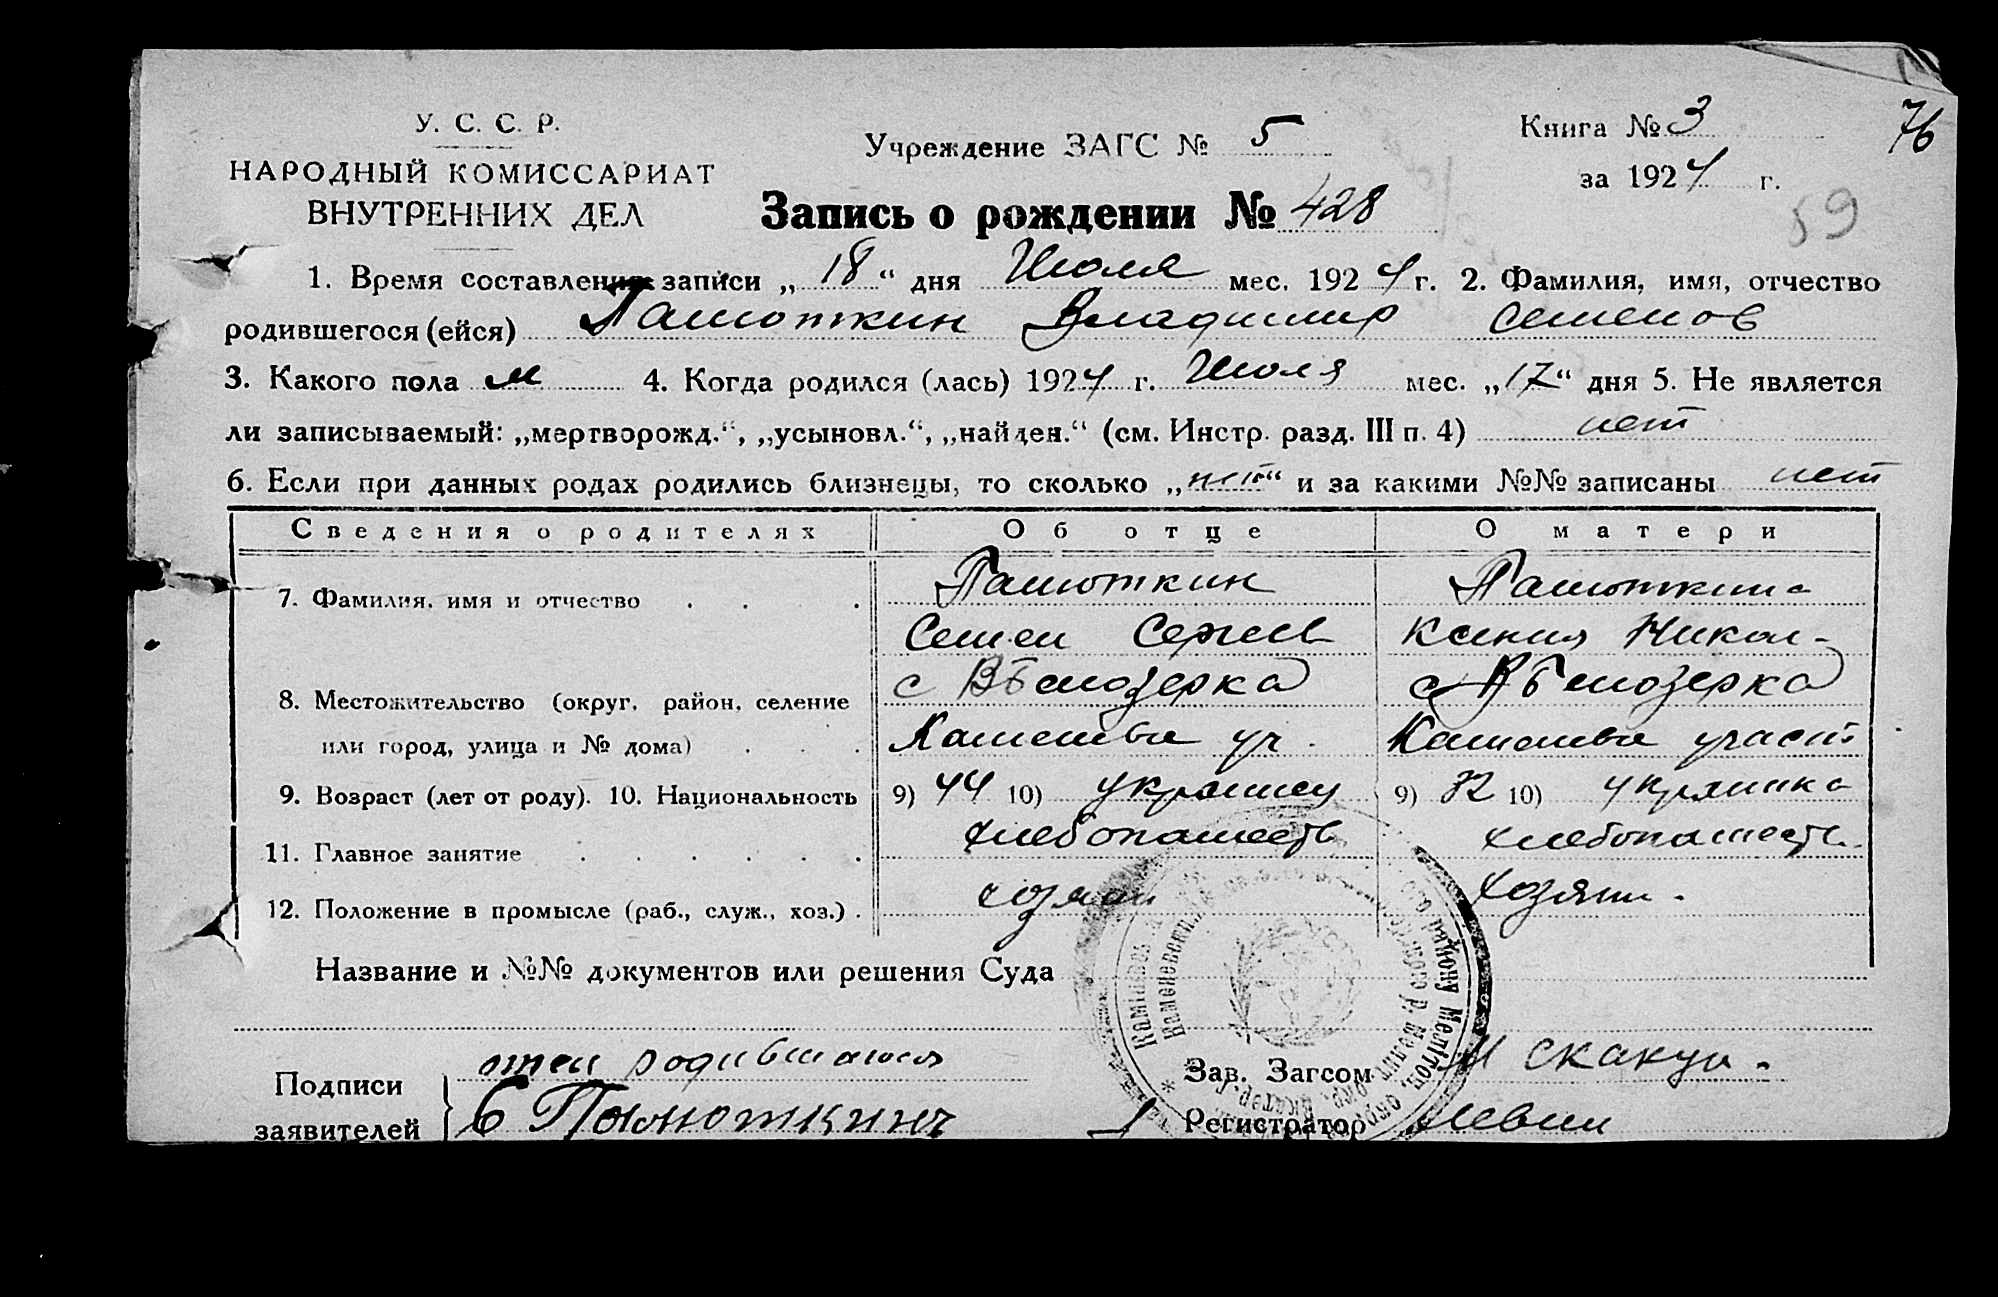 У. С. С. Р.
НАРОДНЫЙ КОМИССАРИАТ
ВНУТРЕННИХ ДЕЛ
Учреждение ЗАГС № 5
Книга № 3
76
за 1924 г.
59
Запись о рождении № 428
1. Время составления записи „18“ дня Июля мес. 1924 г. 2. Фамилия, имя, отчество
родившегося (ейся) Памоткин Владимир Семенов
3. Какого пола м 4. Когда родился (лась) 1924 г. Июля мес. „17“ дня 5. Не является
ли записываемый: „мертворожд.“, „усыновл.“, „найден.“ (см. Инстр. разд. III п. 4) нет
6. Если при данных родах родились близнецы, то сколько „нет“ и за какими №№ записаны нет
Сведения о родителях Об отце О матери
7. Фамилия, имя и отчество Памоткин Памоткина
Семен Сергеев Ксения Никол-
8. Местожительство (округ, район, селение с Белозерка с Белозерка
или город, улица и № дома) Каменская уч. Каменская участ
9. Возраст (лет от роду). 10. Национальность 9) 44 10) украинец 9) 32 10) украинка
11. Главное занятие хлебопашеств хлебопашеств.
12. Положение в промысле (раб., служ., хоз.) хозяин хозяин.
Название и №№ документов или решения Суда
Подписи отец родившагося
заявителей
Зав. Загсом
Регистратор Левин